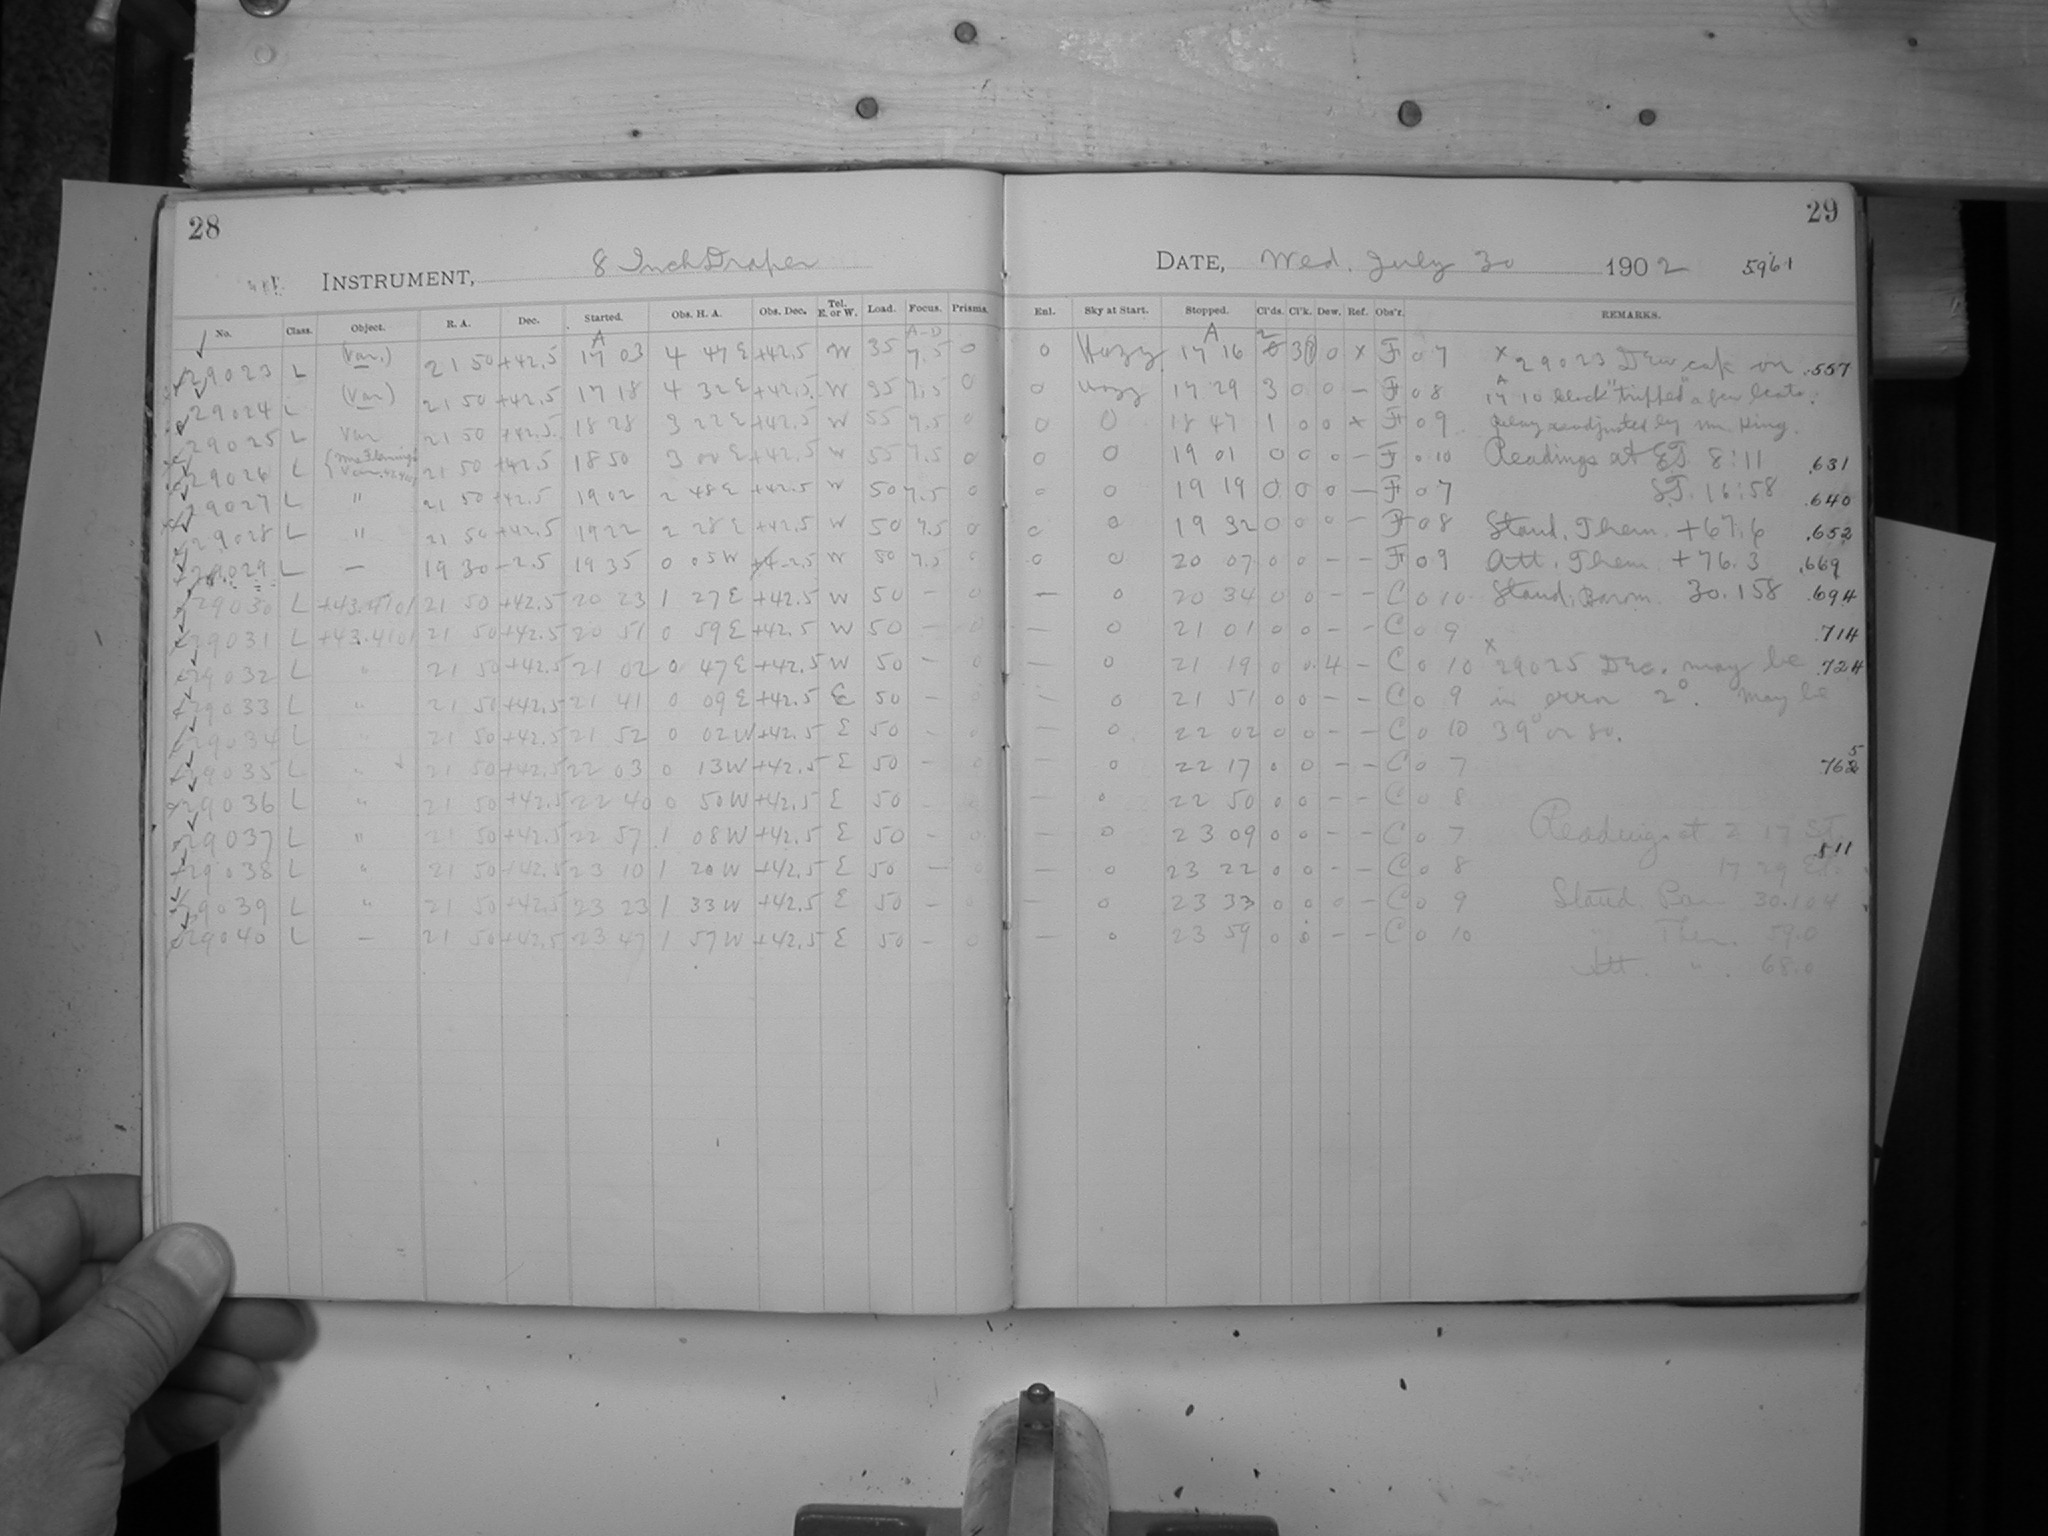 28
29
INSTRUMENT, 8 Inch Draper
DATE, Wed. July 30 1902 5961
No. Class. Object. R. A. Dec. Started. Obs. H. A. Obs. Dec. Tel. E. or W. Load. Focus. Prisms. Enl. Sky at Start. Stopped. Cl'ds. Cl'k. Dew. Ref. Obs'r. REMARKS.
29023 L (Var.) 21 50 +42.5 A 17 03 4 47 E +42.5 W 35 A-D 7.5 0 0 Hazy A 17 16 2 0 x F 0 7 x 29023 Dew cap on .557
29024 L (Var) 21 50 +42.5 17 18 4 32 E +42.5 W 35 7.5 0 0 Hazy 17 29 3 0 0 – F 0 8 17 10 clock "tripped" a few beats.
29025 L Var 21 50 +42.5 18 28 3 22 E +42.5 W 55 7.5 0 0 0 18 47 1 0 0 x F 0 9 Relay readjusted by Mr. King.
29026 L Mrs Flemings Var. 21 50 +42.5 18 50 3 00 E +42.5 W 55 7.5 0 0 0 19 01 0 0 0 – F 0 10 Readings at ET. 8:11 .631
29027 L " 21 50 +42.5 19 02 2 48 E +42.5 W 50 7.5 0 0 0 19 19 0 0 0 – F 0 7 ST. 16:58 .640
29028 L " 21 50 +42.5 19 22 2 28 E +42.5 W 50 7.5 0 0 0 19 32 0 0 0 – F 0 8 Stand. Them. +67.6 .652
29029 L – 19 30 –2.5 19 35 0 05 W –2.5 W 50 7.5 0 0 0 20 07 0 0 – – F 0 9 Att. Them. +76.3 .669
29030 L +43.4101 21 50 +42.5 20 23 1 27 E +42.5 W 50 – 0 – 0 20 34 0 0 – – C 0 10 Stand. Barom. 30.158 .694
29031 L +43.4101 21 50 +42.5 20 51 0 59 E +42.5 W 50 – 0 – 0 21 01 0 0 – – C 0 9 .714
29032 L " 21 50 +42.5 21 02 0 47 E +42.5 W 50 – 0 – 0 21 19 0 0 4 – C 0 10 x 29025 Dec. may be .724
29033 L " 21 50 +42.5 21 41 0 09 E +42.5 E 50 – 0 – 0 21 51 0 0 – – C 0 9 in error 2°. May be
29034 L " 21 50 +42.5 21 52 0 02 W +42.5 E 50 – 0 – 0 22 02 0 0 – – C 0 10 39° or so.
29035 L " 21 50 +42.5 22 03 0 13 W +42.5 E 50 – 0 – 0 22 17 0 0 – – C 0 7
29036 L " 21 50 +42.5 22 40 0 50 W +42.5 E 50 – 0 – 0 22 50 0 0 – – C 0 8
29037 L " 21 50 +42.5 22 57 1 08 W +42.5 E 50 – 0 – 0 23 09 0 0 – – C 0 7 Readings at 2 17 ST.
29038 L " 21 50 +42.5 23 10 1 20 W +42.5 E 50 – 0 – 0 23 22 0 0 – – C 0 8 17 29 ET.
29039 L " 21 50 +42.5 23 23 1 33 W +42.5 E 50 – 0 – 0 23 33 0 0 0 – C 0 9 Stand. Bar. 30.104
29040 L – 21 50 +42.5 23 47 1 57 W +42.5 E 50 – 0 – 0 23 59 0 0 – – C 0 10 " Ther. 59.0
Att. " 68.0